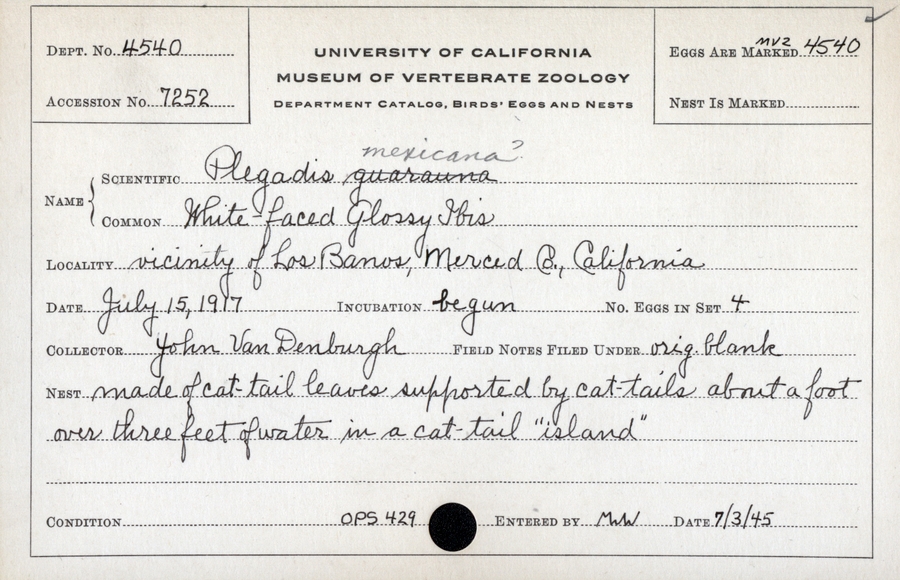 Dept. No. 4540
Accession No. 7252
UNIVERSITY OF CALIFORNIA
MUSEUM OF VERTEBRATE ZOOLOGY
Department Catalog, Birds' Eggs and Nests
Eggs Are Marked MVZ 4540
Nest Is Marked
mexicana?
Name { Scientific Plegadis guarauna
Common White-faced Glossy Ibis
Locality vicinity of Los Banos, Merced Co., California
Date July 15, 1917 Incubation begun No. Eggs in Set 4
Collector John Van Denburgh Field Notes Filed Under orig. blank
Nest made of cat-tail leaves supported by cat-tails about a foot
over three feet of water in a cat-tail "island"
Condition OPS 429 Entered by MW Date 7/3/45